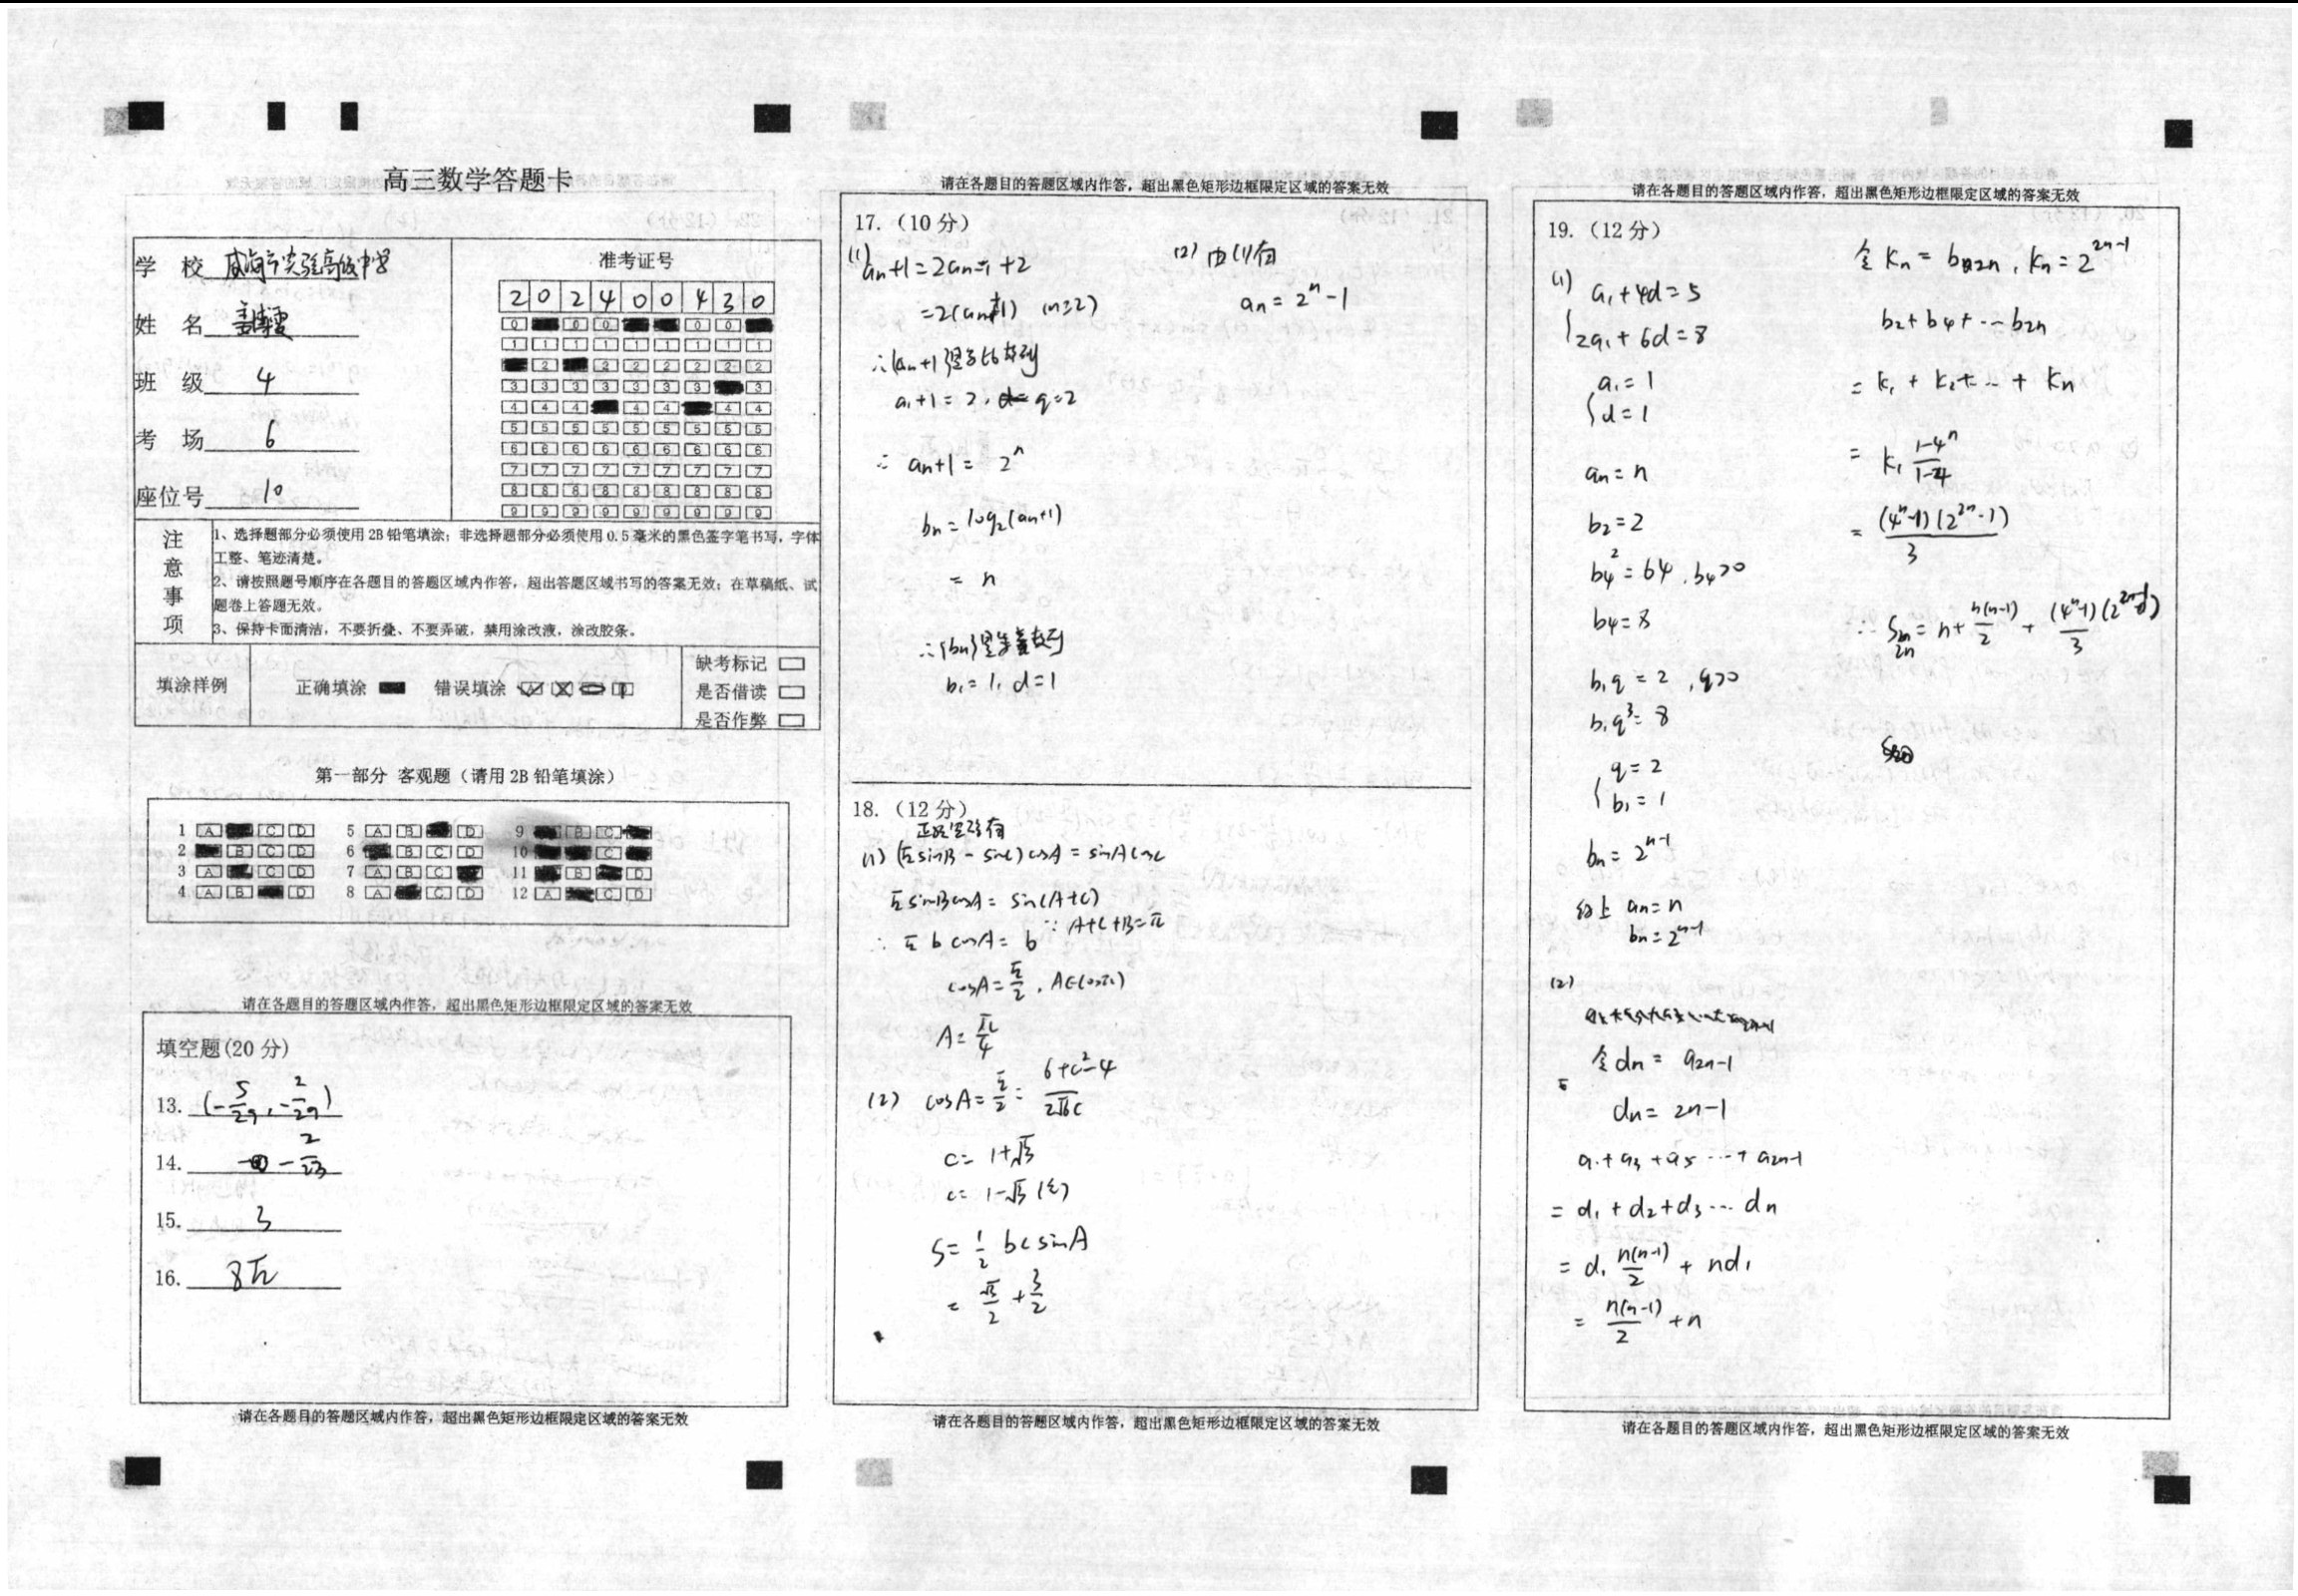 高三数学答题卡
学 校 威海市实验高级中学
姓 名
班 级 4
考 场 6
座位号 10
准考证号
2 0 2 4 0 0 4 3 0
注意事项
1、选择题部分必须使用 2B 铅笔填涂；非选择题部分必须使用 0.5 毫米的黑色签字笔书写，字体
工整、笔迹清楚。
2、请按照题号顺序在各题目的答题区域内作答，超出答题区域书写的答案无效；在草稿纸、试
题卷上答题无效。
3、保持卡面清洁，不要折叠、不要弄破，禁用涂改液，涂改胶条。
填涂样例 正确填涂 错误填涂
缺考标记
是否借读
是否作弊
第一部分 客观题（请用 2B 铅笔填涂）
1 A C D 5 A B D 9 B C
2 B C D 6 B C D 10 C
3 A C D 7 A B C 11 B D
4 A B D 8 A C D 12 A C D
请在各题目的答题区域内作答，超出黑色矩形边框限定区域的答案无效
填空题(20 分)
13. (-5/29, -2/29)
14. -2/√3
15. 3
16. 8√2
请在各题目的答题区域内作答，超出黑色矩形边框限定区域的答案无效
请在各题目的答题区域内作答，超出黑色矩形边框限定区域的答案无效
17.（10 分）
(1) an+1=2an-1+2
=2(an-1+1) (n≥2)
∴{an+1}是等比数列
a1+1=2, q=2
∴ an+1= 2^n
bn=log2(an+1)
= n
∴{bn}是等差数列
b1=1, d=1
(2) 由(1)有
an=2^n-1
18.（12 分）
正弦定理有
(1) (√2sinB-sinC)cosA=sinAcosC
√2sinBcosA=sin(A+C)
∵A+C+B=π
∴ √2 b cosA=b
cosA=√2/2, A∈(0,π)
A=π/4
(2) cosA=√2/2=(6+c²-4)/(2√6c)
c=1+√3
c=1-√3(舍)
S=1/2 bcsinA
=√3/2+3/2
请在各题目的答题区域内作答，超出黑色矩形边框限定区域的答案无效
请在各题目的答题区域内作答，超出黑色矩形边框限定区域的答案无效
19.（12 分）
(1) { a1+4d=5
2a1+6d=8
{ a1=1
d=1
an=n
b2=2
b4²=64, b4>0
b4=8
b1q=2, q>0
b1q³=8
{ q=2
b1=1
bn=2^(n-1)
综上 an=n
bn=2^(n-1)
(2)
令dn= a2n-1
dn= 2n-1
a1+a3+a5…+a2n-1
= d1+d2+d3…dn
= d1 n(n-1)/2 + nd1
= n(n-1)/2 +n
令Kn=b2n, Kn=2^(2n-1)
b2+b4+…b2n
= K1+K2+…+Kn
= K1 (1-4^n)/(1-4)
= (4^n-1)(2^(2n-1))/3
∴ S2n=n+n(n-1)/2+(4^n-1)(2^(2n-1))/3
请在各题目的答题区域内作答，超出黑色矩形边框限定区域的答案无效